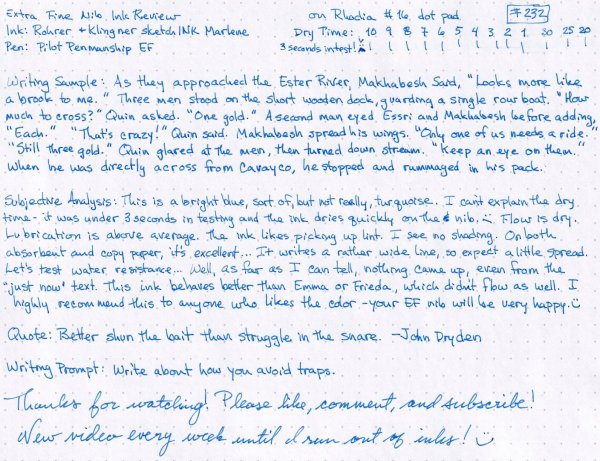 Extra Fine Nib Ink Review on Rhodia #16 dot pad #232
Ink: Rohrer + Klingner sketchINK Marlene Dry Time: 10 9 8 7 6 5 4 3 2 1 30 25 20
Pen: Pilot Penmanship EF 3 seconds in test!
Writing Sample: As they approached the Ester River, Makhabesh said, "Looks more like
a brook to me." Three men stood on the short wooden dock, guarding a single row boat. "How
much to cross?" Quin asked. "One gold." A second man eyed Essri and Makhabesh before adding,
"Each." "That's crazy!" Quin said. Makhabesh spread his wings. "Only one of us needs a ride."
"Still three gold." Quin glared at the men, then turned down stream. "Keep an eye on them."
When he was directly across from Cavayco, he stopped and rummaged in his pack.
Subjective Analysis: This is a bright blue, sort of, but not really, turquoise. I can't explain the dry
time - it was under 3 seconds in testing and the ink dries quickly on the nib. Flow is dry.
Lubrication is above average. The ink likes picking up lint. I see no shading. On both
absorbent and copy paper, it's excellent... It writes a rather wide line, so expect a little spread.
Let's test water resistance... Well, as far as I can tell, nothing came up, even from the
"just now" text. This ink behaves better than Emma or Frieda, which didn't flow as well. I
highly recommend this to anyone who likes the color - your EF nib will be very happy.
Quote: Better shun the bait than struggle in the snare. -John Dryden
Writing Prompt: Write about how you avoid traps.
Thanks for watching! Please like, comment, and subscribe!
New video every week until I run out of inks!